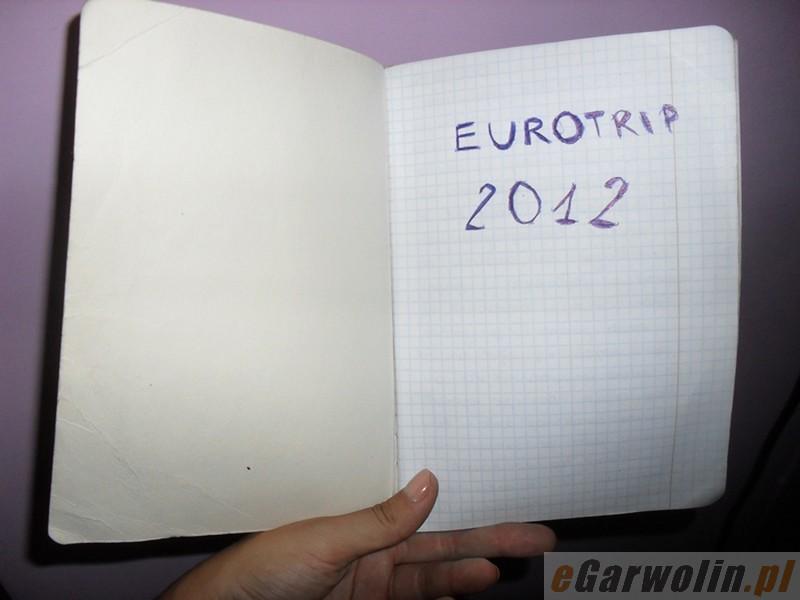 EUROTRIP
2012
eGarwolin.pl